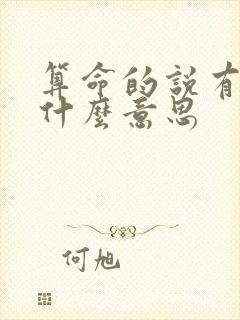 算命的說有
什麼意思
何旭